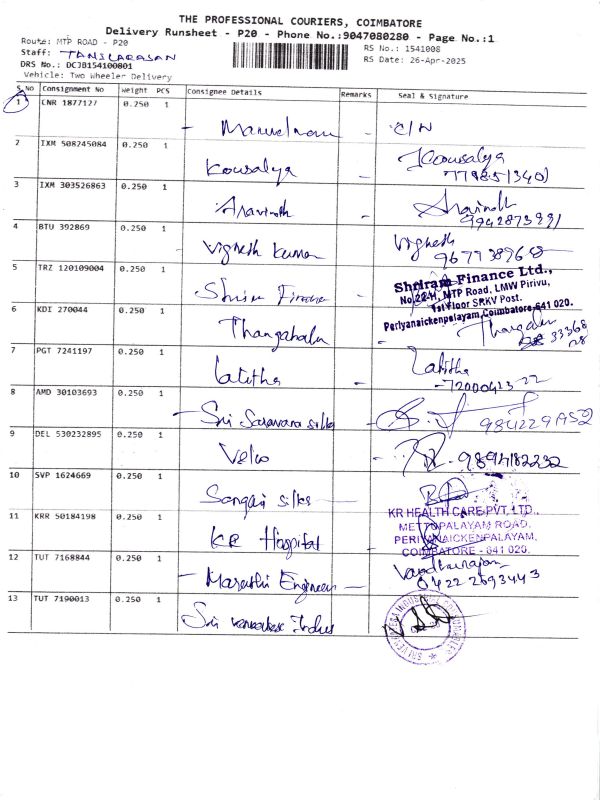 THE PROFESSIONAL COURIERS, COIMBATORE
Delivery Runsheet - P20 - Phone No.:9047080280 - Page No.:1
Route: MTP ROAD - P20
RS No.: 1541008
Staff: TAMILARASAN
RS Date: 26-Apr-2025
DRS No.: DCJB154100801
Vehicle: Two Wheeler Delivery
S No Consignment No Weight PCS Consignee Details Remarks Seal & Signature
1 CNR 1877127 0.250 1
2 IXM 508245084 0.250 1 Kousalya - Kousalya
3 IXM 303526863 0.250 1 Aravinth - Aravinth
4 BTU 392869 0.250 1 Vignesh Kumar - Vignesh
5 TRZ 120109004 0.250 1 Shriram Finance
Shriram Finance Ltd.,
MTP Road, LMW Pirivu,
1st Floor SRKV Post.
Periyanaickenpalayam, Coimbatore-641 020.
6 KDI 270044 0.250 1
7 PGT 7241197 0.250 1 Lalitha - Lalitha
8 AMD 30103693 0.250 1 - Sri Saravana silks
9 DEL 530232895 0.250 1
10 SVP 1624669 0.250 1
11 KRR 50184198 0.250 1 KR Hospital
KR HEALTH CARE PVT. LTD.,
METTUPALAYAM ROAD,
PERIYANAICKENPALAYAM,
COIMBATORE - 641 020.
12 TUT 7168844 0.250 1 - Maruthi Engineers -
0422 2693443
13 TUT 7190013 0.250 1